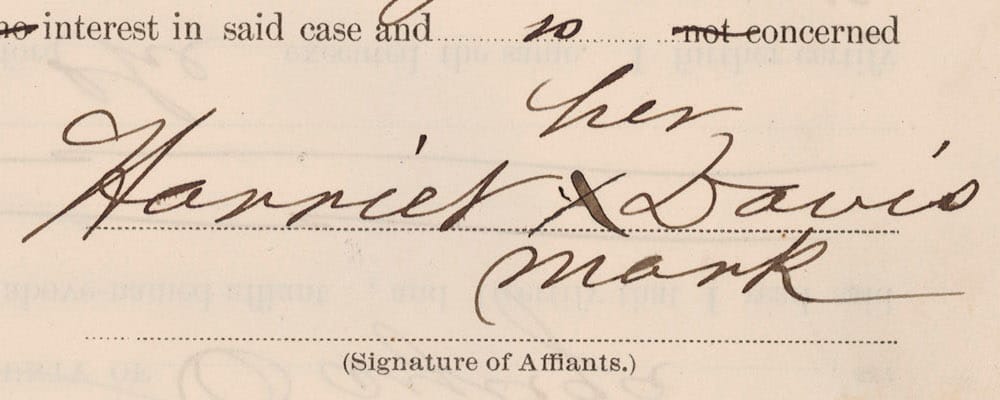 no interest in said case and so not concerned
her
Harriet X Davis
mark
(Signature of Affiants.)